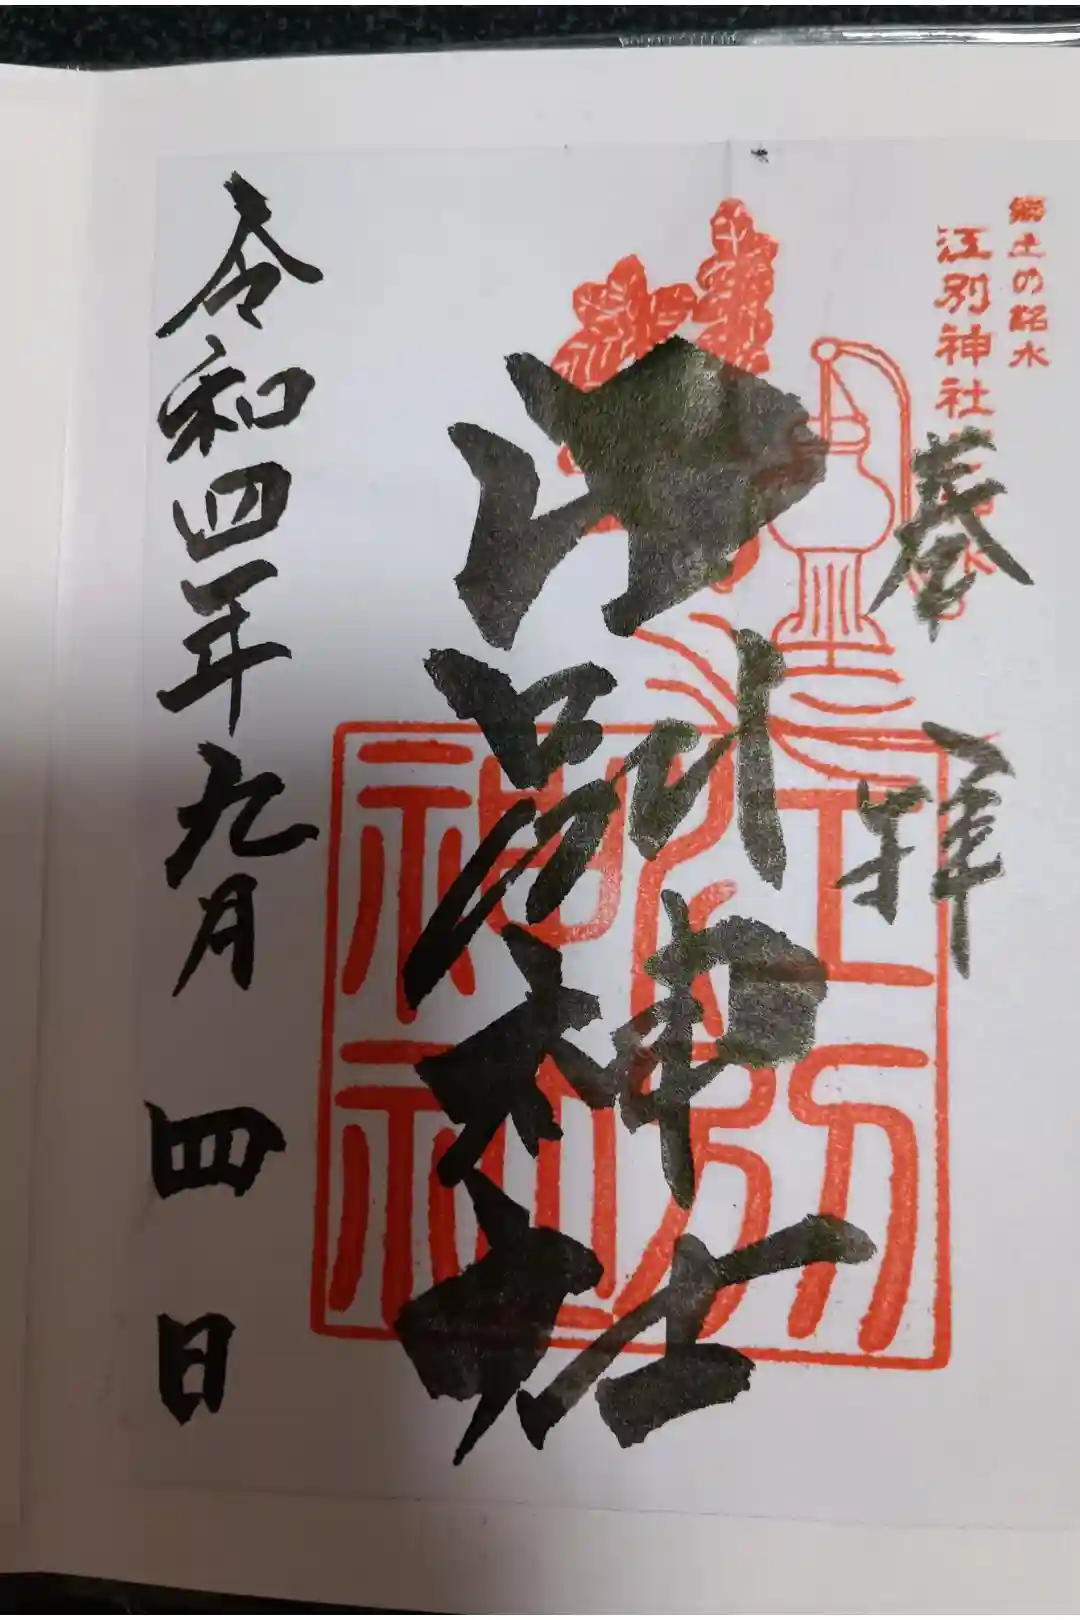 郷土の銘水
江別神社
奉拝
江別神社
江別神社
令和四年九月四日